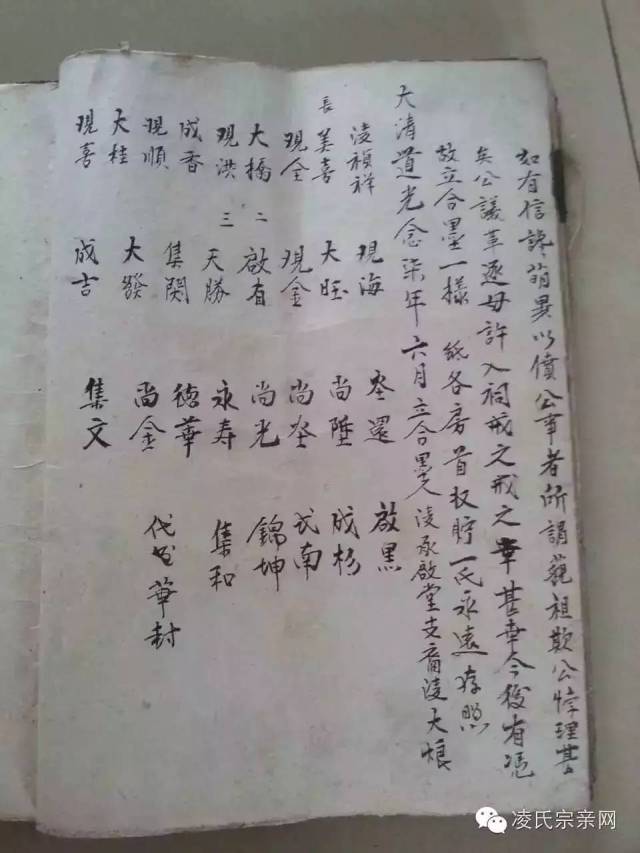 如有信讒萌異以債公事者所謂藐祖欺公悖理甚
矣公議革逐毋許入祠戒之戒之幸甚幸甚今後有憑
故立合墨一樣 紙各房首收貯一氏永遠存照
大清道光念柒年六月立合墨人凌承啟堂支裔凌大恨
凌禎祥 現海 啟黑
長美喜 大旺 尚陞 成杉
現全 現金 尚 南
大橋 二 啟有 尚光 錦坤
現洪 三 天勝 永寿 集和
成香 集関 德華
現順 大發 尚金 代書華封
大桂 成吉 集文
現喜
凌氏宗亲网